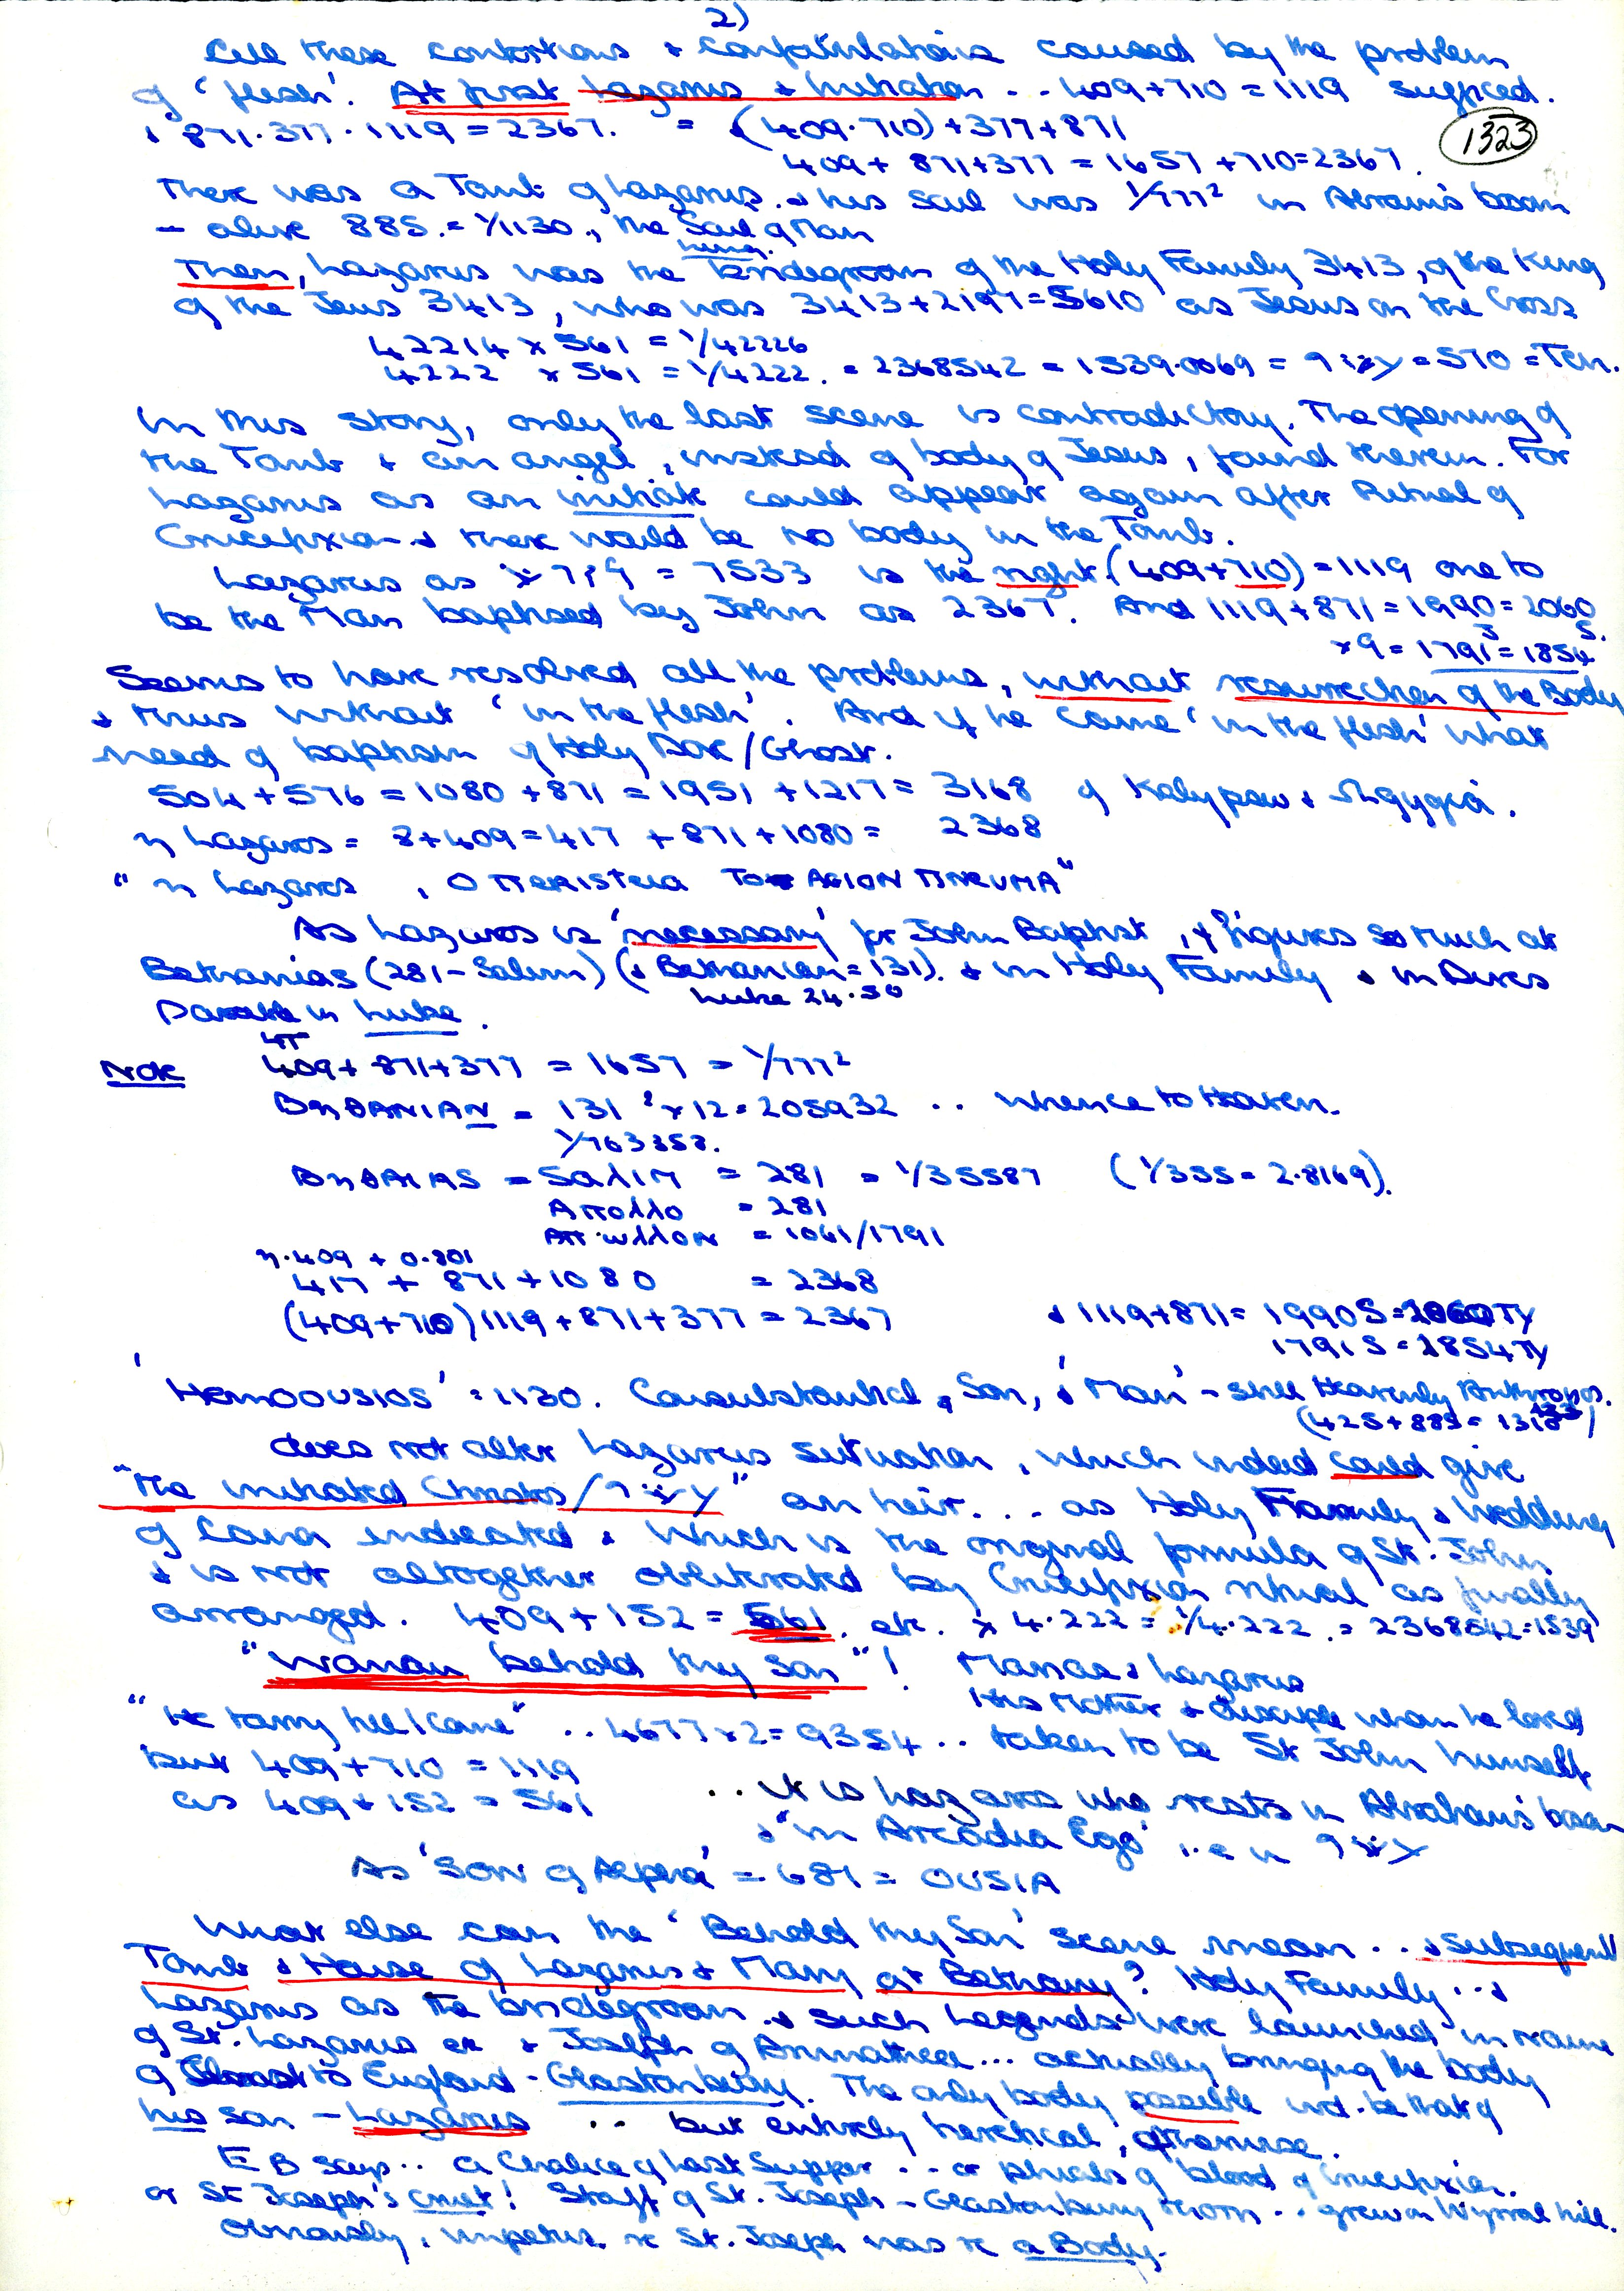 2)
All these contortions & confabulations caused by the problem
of 'flesh'. At first Lazarus & initiation .. 409+710 = 1119 sufficed.
& 871.377.1119 = 2367. = (409.710)+377+871
1323
409+ 871+377 = 1657 +710=2367.
There was a Tomb of Lazarus. & his soul was 1/777² in Abram's bosom
- alive 885. = 1/1130., the Soul of Man
Then, Lazarus was the bridegroom of the Holy Family 3413, of the King
of the Jews 3413, who was 3413+2197=5610 as Jesus on the Cross
42214 x 561 = 1/42226
4222 x 561 = 1/4222. = 2368542 = 1539.0069 = = 570 = Ten.
In this story, only the last scene is contradictory. The opening of
the Tomb & an angel, instead of body of Jesus, found therein. For
Lazarus as an initiate could appear again after Ritual of
Crucifixion - & there would be no body in the Tomb.
Lazarus as = 7533 is the right (409+710) = 1119 one to
be the Man baptised by John as 2367. And 1119+871=1990=2060
S.
x9 = 1791 = 1854
Seems to have resolved all the problems, without resurrection of the Body
& thus without 'in the flesh'. And if he came 'in the flesh' what
need of baptism of Holy Dove/Ghost.
504+576 = 1080 +871 = 1951 +1217= 3168 of Kalypsw & Ωgygia.
η Lazaros = 8+409=417 +871+1080= 2368
"η Lazaros, O Περιsτεια TO AGION ΠNEUMA"
As Lazaros is 'necessary' for John Baptist, & figures so much at
Bethanias (281-Salim) (& Bethanian=131). & in Holy Family & in Dives
Luke 24.50
Parable in Luke.
Note 409+ 871+377 = 1657 = 1/777²
BηθANIAN = 131 ²x12=205932 .. whence to Heaven.
1/763358.
BηθAIAS = SαλIM = 281 = 1/35587 (1/355= 2.8169).
Aπολλο = 281
Aπ.ωλλοn = 1061/1791
η.409 + 0.801
417 + 871+1080 = 2368
(409+710) 1119+871+377 = 2367 & 1119+871= 1990S=2060Ty
1791S=1854Ty
'Homoousios' = 1130. Consubstantial, Son, & 'Man' - still Heavenly Anthropos.
does not alter Lazarus situation, which indeed could give
"the initiated Christos/ " an heir... as Holy Family & Wedding
of Cana indicated & which is the original formula of St. John
& is not altogether obliterated by Crucifixion ritual as finally
arranged. 409+152 = 561. etc. x 4.222 = 1/4.222. = 2368542=1539
"Woman behold thy Son"! Mariae & Lazarus
His Mother & disciple whom he loved
"He tarry till I come" .. 4677x2=9354 .. taken to be St John himself
but 409+710 = 1119
as 409+152 = 561 .. it is Lazaros who rests in Abraham's bosom
& "in Arcadia Ego' i.e in
As 'Son of Alpha' = 681 = OUSIA
What else can the 'Behold thy Son' scene mean .. & subsequent
Tomb & House of Lazarus & Mary at Bethany? Holy Family .. &
Lazarus as the bridegroom. & such Legends were launched in name
of St. Lazarus etc & Joseph of Arimathea ... actually bringing the body
of to England - Glastonbury. The only body possible wd. be that of
his son - Lazarus .. but entirely heretical, otherwise.
E B says .. a Chalice of Last Supper .. or phials of blood of Crucifixion.
or St Joseph's cruet! Staff of St. Joseph - Glastonbury thorn .. grew on Wyrral hill.
Obviously, impetus. re St. Joseph was re a Body.